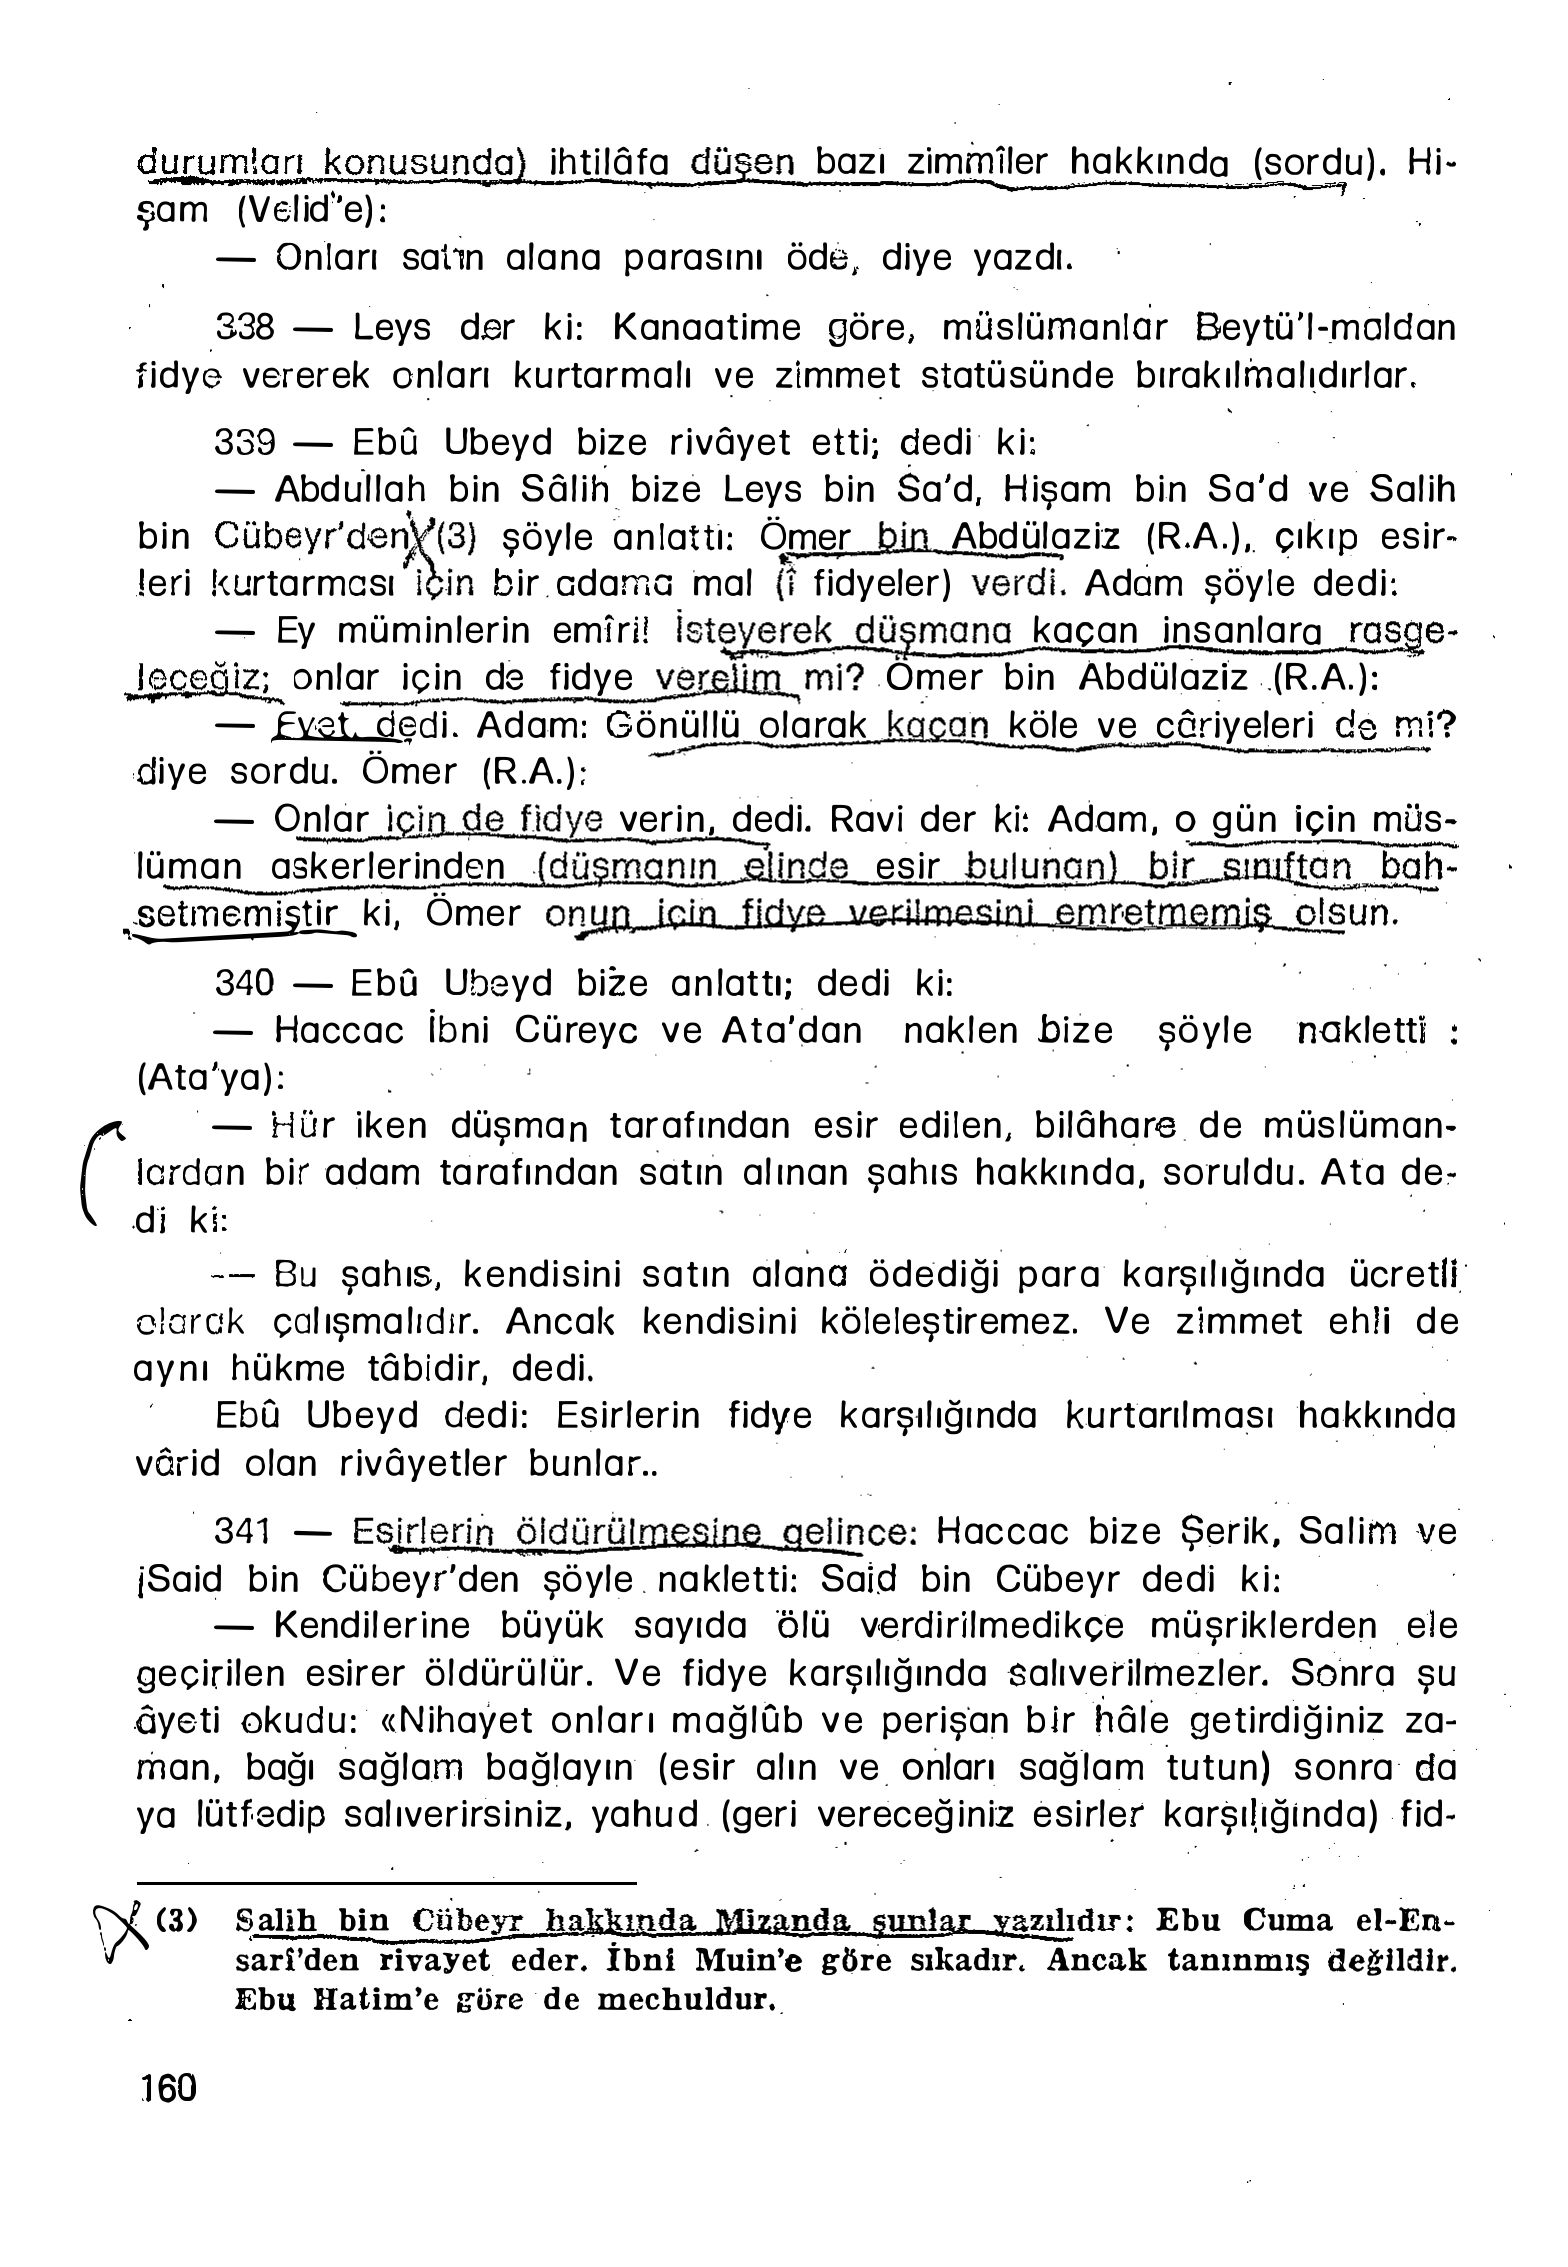 durumları konusunda) ihtilâfa düşen bazı zimmîler hakkında (sordu). Hi-
şam (Velid''e):
— Onları satın alana parasını öde, diye yazdı.
338 — Leys der ki: Kanaatime göre, müslümanlar Beytü'l-maldan
fidye vererek onları kurtarmalı ve zimmet statüsünde bırakılmalıdırlar.
339 — Ebû Ubeyd bize rivâyet etti; dedi ki:
— Abdullah bin Sâlih bize Leys bin Sa'd, Hişam bin Sa'd ve Salih
bin Cübeyr'den (3) şöyle anlattı: Ömer bin Abdülaziz (R.A.), çıkıp esir-
leri kurtarması için bir adama mal (î fidyeler) verdi. Adam şöyle dedi:
— Ey müminlerin emîri! İsteyerek düşmana kaçan insanlara rasge-
leceğiz; onlar için de fidye verelim mi? Ömer bin Abdülaziz (R.A.):
— Evet, dedi. Adam: Gönüllü olarak kaçan köle ve câriyeleri de mi?
diye sordu. Ömer (R.A.):
— Onlar için de fidye verin, dedi. Ravi der ki: Adam, o gün için müs-
lüman askerlerinden (düşmanın elinde esir bulunan) bir sınıftan bah-
setmemiştir ki, Ömer onun için fidye verilmesini emretmemiş olsun.
340 — Ebû Ubeyd bize anlattı; dedi ki:
— Haccac İbni Cüreyc ve Ata'dan naklen bize şöyle nakletti :
(Ata'ya):
— Hür iken düşman tarafından esir edilen, bilâhare de müslüman-
lardan bir adam tarafından satın alınan şahıs hakkında, soruldu. Ata de-
di ki:
— Bu şahıs, kendisini satın alana ödediği para karşılığında ücretli
olarak çalışmalıdır. Ancak kendisini köleleştiremez. Ve zimmet ehli de
aynı hükme tâbidir, dedi.
Ebû Ubeyd dedi: Esirlerin fidye karşılığında kurtarılması hakkında
vârid olan rivâyetler bunlar..
341 — Esirlerin öldürülmesine gelince: Haccac bize Şerik, Salim ve
Said bin Cübeyr'den şöyle nakletti: Said bin Cübeyr dedi ki:
— Kendilerine büyük sayıda ölü verdirilmedikçe müşriklerden ele
geçirilen esirer öldürülür. Ve fidye karşılığında salıverilmezler. Sonra şu
âyeti okudu: «Nihayet onları mağlûb ve perişan bir hâle getirdiğiniz za-
man, bağı sağlam bağlayın (esir alın ve onları sağlam tutun) sonra da
ya lütfedip salıverirsiniz, yahud (geri vereceğiniz esirler karşılığında) fid-
(3) Salih bin Cübeyr hakkında Mizanda şunlar yazılıdır: Ebu Cuma el-En-
sarî'den rivayet eder. İbni Muin'e göre sıkadır. Ancak tanınmış değildir.
Ebu Hatim'e göre de mechuldur.
160